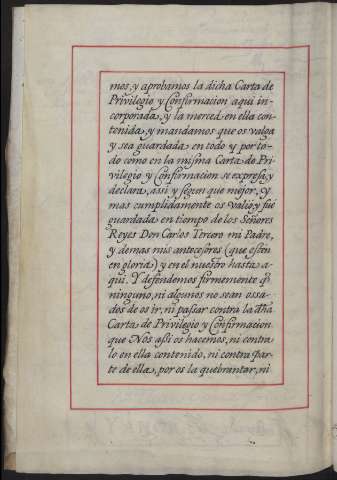 mos, y aprobamos la dicha Carta de
Privilegio y Confirmacion aqui in-
corporada, y la merced en ella con-
tenida, y mandamos que os valga
y sea guardada en todo y por to-
do como en la misma Carta de Pri-
vilegio y Confirmacion se expresa, y
declara, assi y segun que mejor, y
mas cumplidamente os valió, y fué
guardada en tiempo de los Señores
Reyes Don Carlos Tercero mi Padre,
y demas mis antecesores (que esten
en gloria) y en el nuestro hasta a-
qui. Y defendemos firmemente q̃
ninguno, ni algunos no sean ossa-
dos de os ir, ni passar contra la dha
Carta de Privilegio y Confirmacion
que Nos assi os hacemos, ni contra
lo en ella contenido, ni contra par-
te de ella, por os la quebrantar, ni